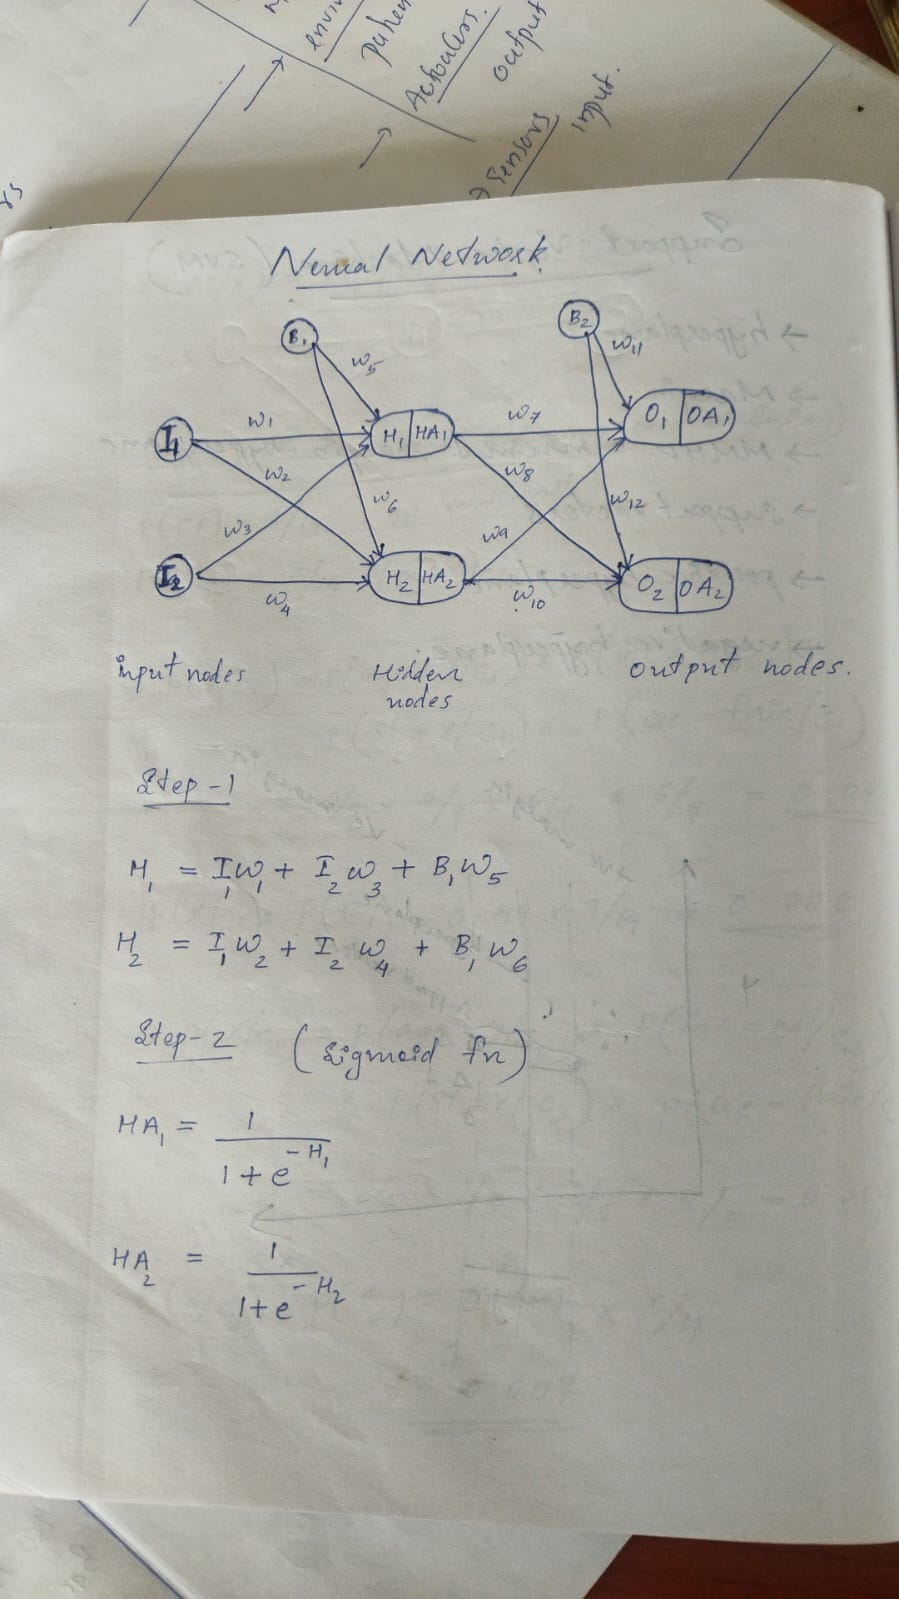 envi
pahen
Actuators.
output
→ Sensors
input.
rs
Neural Network
B₁
B₂
w₅
w₁₁
I₁
w₁
H₁ | HA₁
w₇
O₁ | OA₁
w₂
w₈
w₃
w₆
w₉
w₁₂
I₂
w₄
H₂ | HA₂
w₁₀
O₂ | OA₂
input nodes
Hidden
nodes
output nodes.
Step-1
H₁ = I₁w₁ + I₂w₃ + B₁w₅
H₂ = I₁w₂ + I₂w₄ + B₁w₆
Step-2 (Sigmoid fn)
HA₁ = 1 / (1 + e^(-H₁))
HA₂ = 1 / (1 + e^(-H₂))